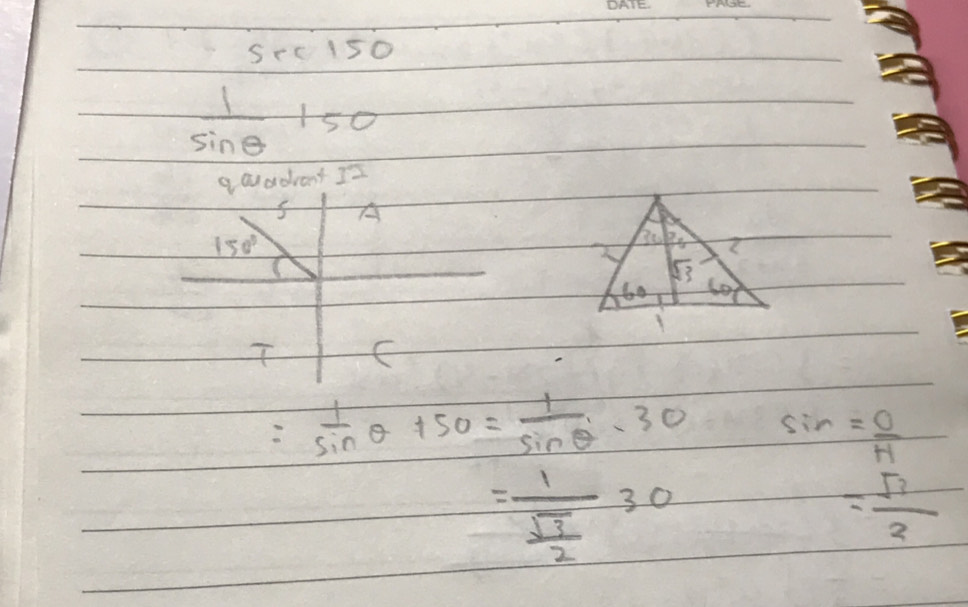 DATE. PAGE.
sec 150
1/sinθ 150
quadrant II
S A
150°
T C
30 30
2 2
√3
60 60
1
= 1/sin θ 150 = 1/sinθ . 30 sin = O/H
= 1/(√3/2) 30 = √3/2